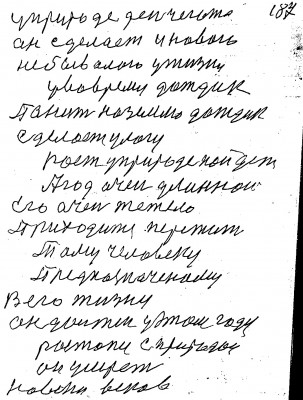 187
у природе для чегото
он сделает и нового
небывалого у жизни
увовремя дождик
Панет на землю дождик
сделает улогу
рост у природе пойдет
А год очен длинной
Его очен тежело
приходитц пережит
Тому человеку
предназначеному
В его жизну
он должен у этом году
ростати с природай
он умрет
на веки веков